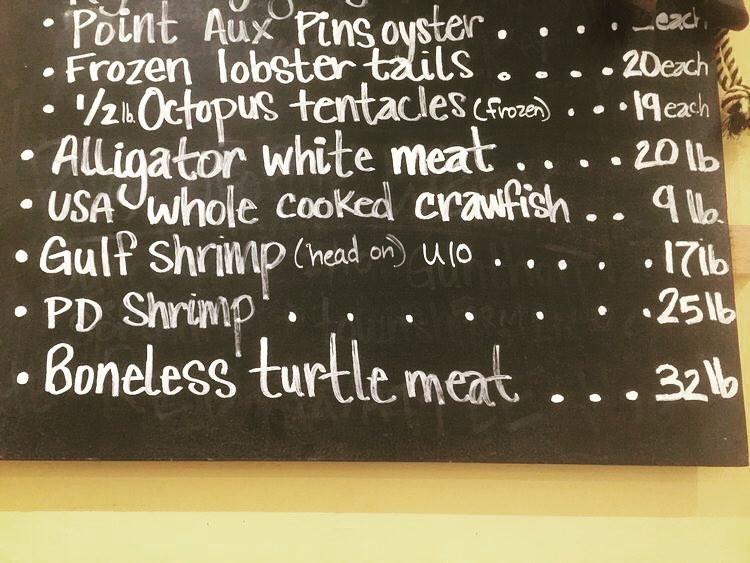 • Point Aux Pins oyster . . . . each
• Frozen lobster tails . . . . 20 each
• 1/2 lb. Octopus tentacles (frozen) . . . 19 each
• Alligator white meat . . . . 20 lb
• USA whole cooked crawfish . . 9 lb.
• Gulf shrimp (head on) U10 . . . . . . 17 lb
• PD Shrimp . . . . . . . 25 lb
• Boneless turtle meat . . . 32 lb